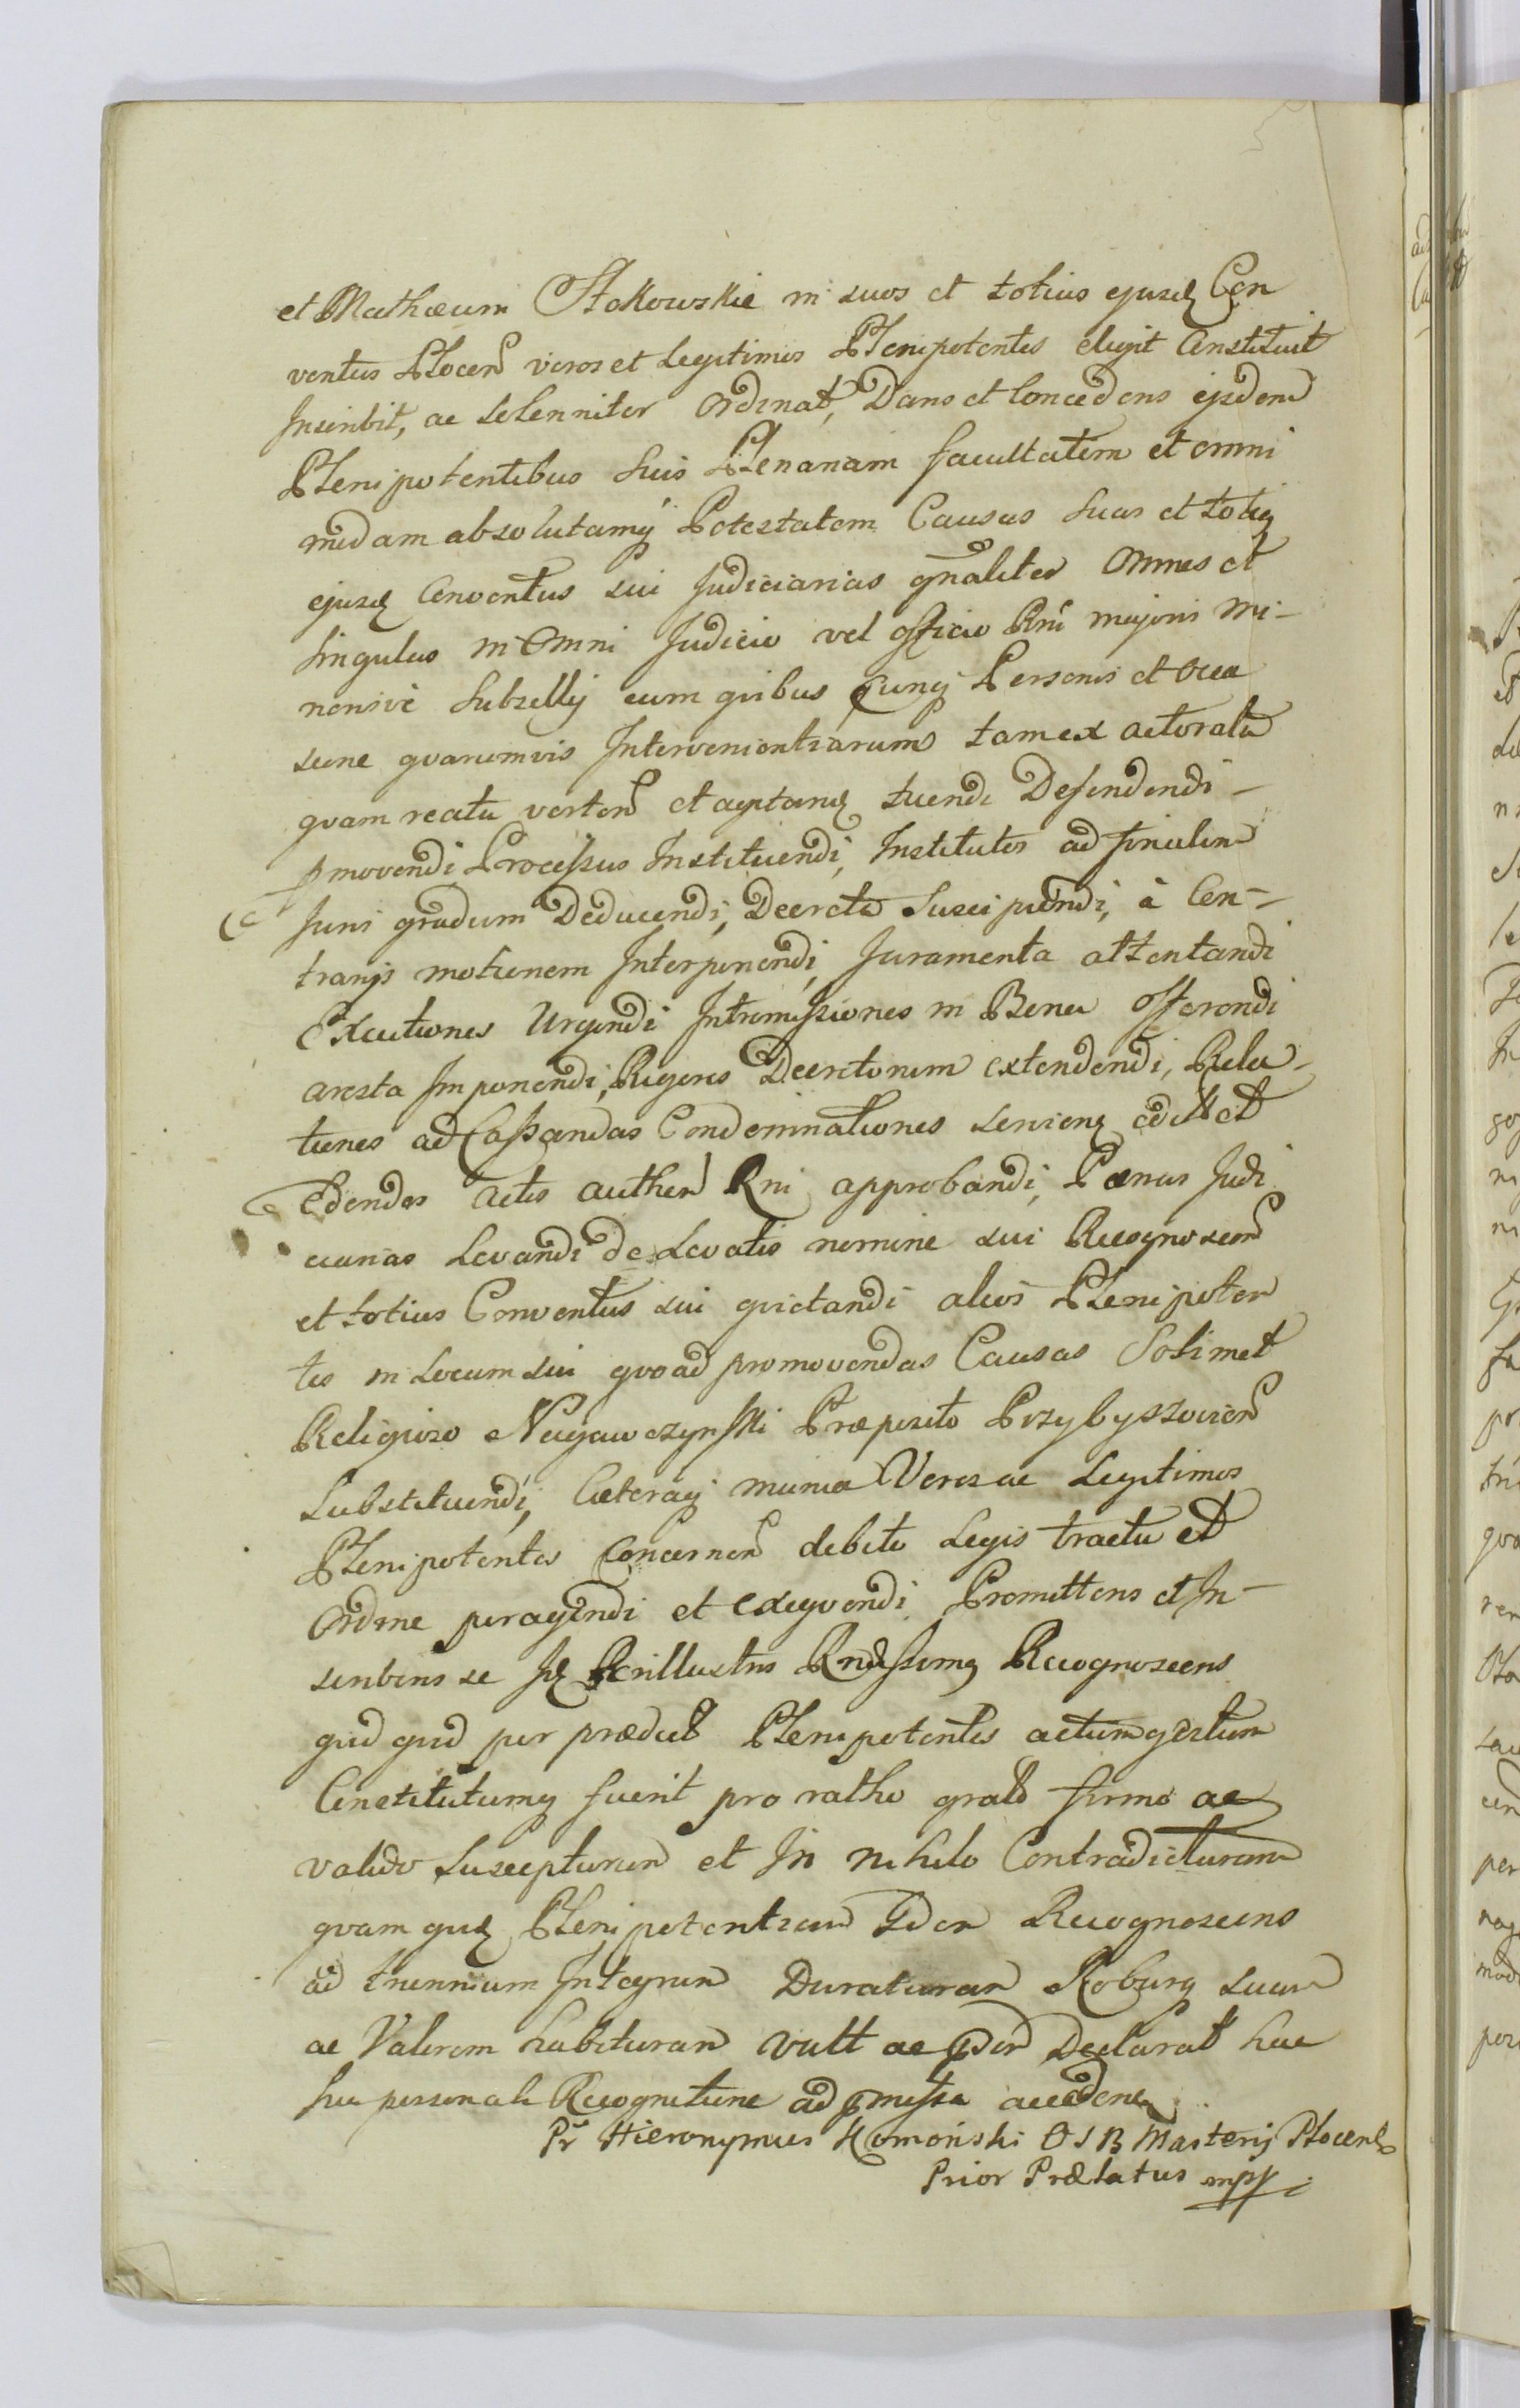 et Mathæum Stokowskie in suos et totius ejusdq Con
ventus Plocen veros et Legitimos Plenipotentes elegit Constituit
Inscribit, ac Solenniter Ordinat, Dans et Concedens ejsdem
Plenipotentibus Suis Plenariam facultatem et omni
modam absolutamq Potestatem Causas Suas et totiq
ejusdq Conventus sui Judiciarias gnaliter Omnes et
Singulas in Omni Judicio vel officio Rni majoris mi-
norisve Subsellij cum qvibus cunq Personis et Occa
sione qvarumvis Intervenientiarum tam ex actoratu
qvam reatu verten et agitandq tuendi Defendendi-
pmovendi Processus Instituendi, Institutos ad finalem
Juris gradum Deducendi, Decreta Suscipiendi, à Con-
trarijs motionem Interponendi, Juramenta attentandi
Executiones Urgendi Intromissiones in Bona Offerendi
aresta Imponendi, Rigores Decretorum extendendi, Rela-
tiones ad Cassandas Condemnationes servienq edit et
Edendas actis authen Rni approbandi, Pænas Judi
ciarias Levandi de Levatis nomine sui Recognoscen
et totius Conventus sui qvietandi alios Plenipoten
tes in Locum sui qvoad promovendas Causas Solimet
Religioso Nagawczynski Præposito Przybyszovien
Substituendi, Cæteraq munia Veros ac Legitimos
Plenipotentes Concernen debito Legis tractu et
Ordine peragendi et exeqvendi Promittens et In-
scribens se Idq Perillustris Rndissimq Recognoscens
qvid qvid per prædict Plenipotentes actum gestum
Constitutumq fuerit pro ratho grato firmo ac
valido Suscepturum et In nihilo Contradicturum
qvam qvidq Plenipotentiam Idem Recognoscens
ad triennium Integrum Duraturam Roburq suum
ac Valorem habituram vult ac Declarat hac
Sua personali Recognitione ad pmissa accedenq
Pr Hieronymus Homoński O S B Masterij Plocens
Prior Prælatus mpp